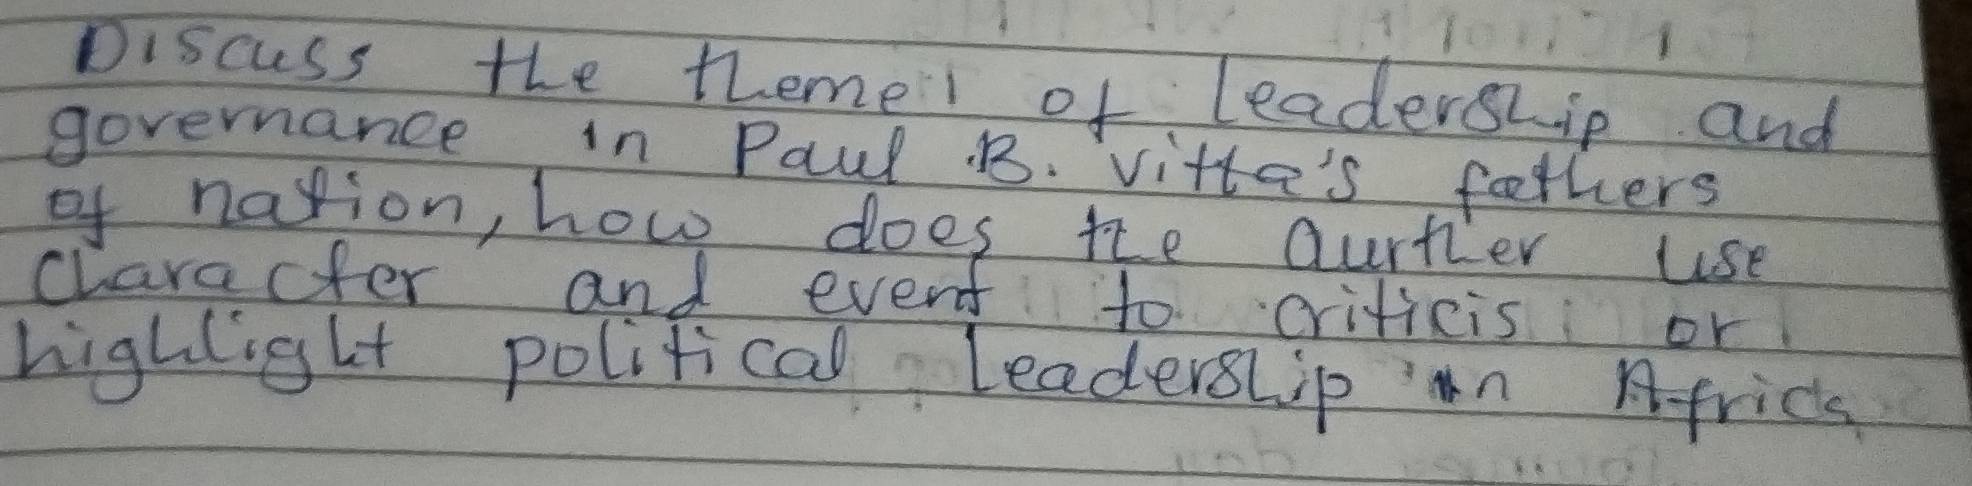 Discuss the theme of leadership and
governance in Paul .B. Vitta's fathers
of nation, how does the aurther use
character and event to criticis or
highlight political leadership in Africa